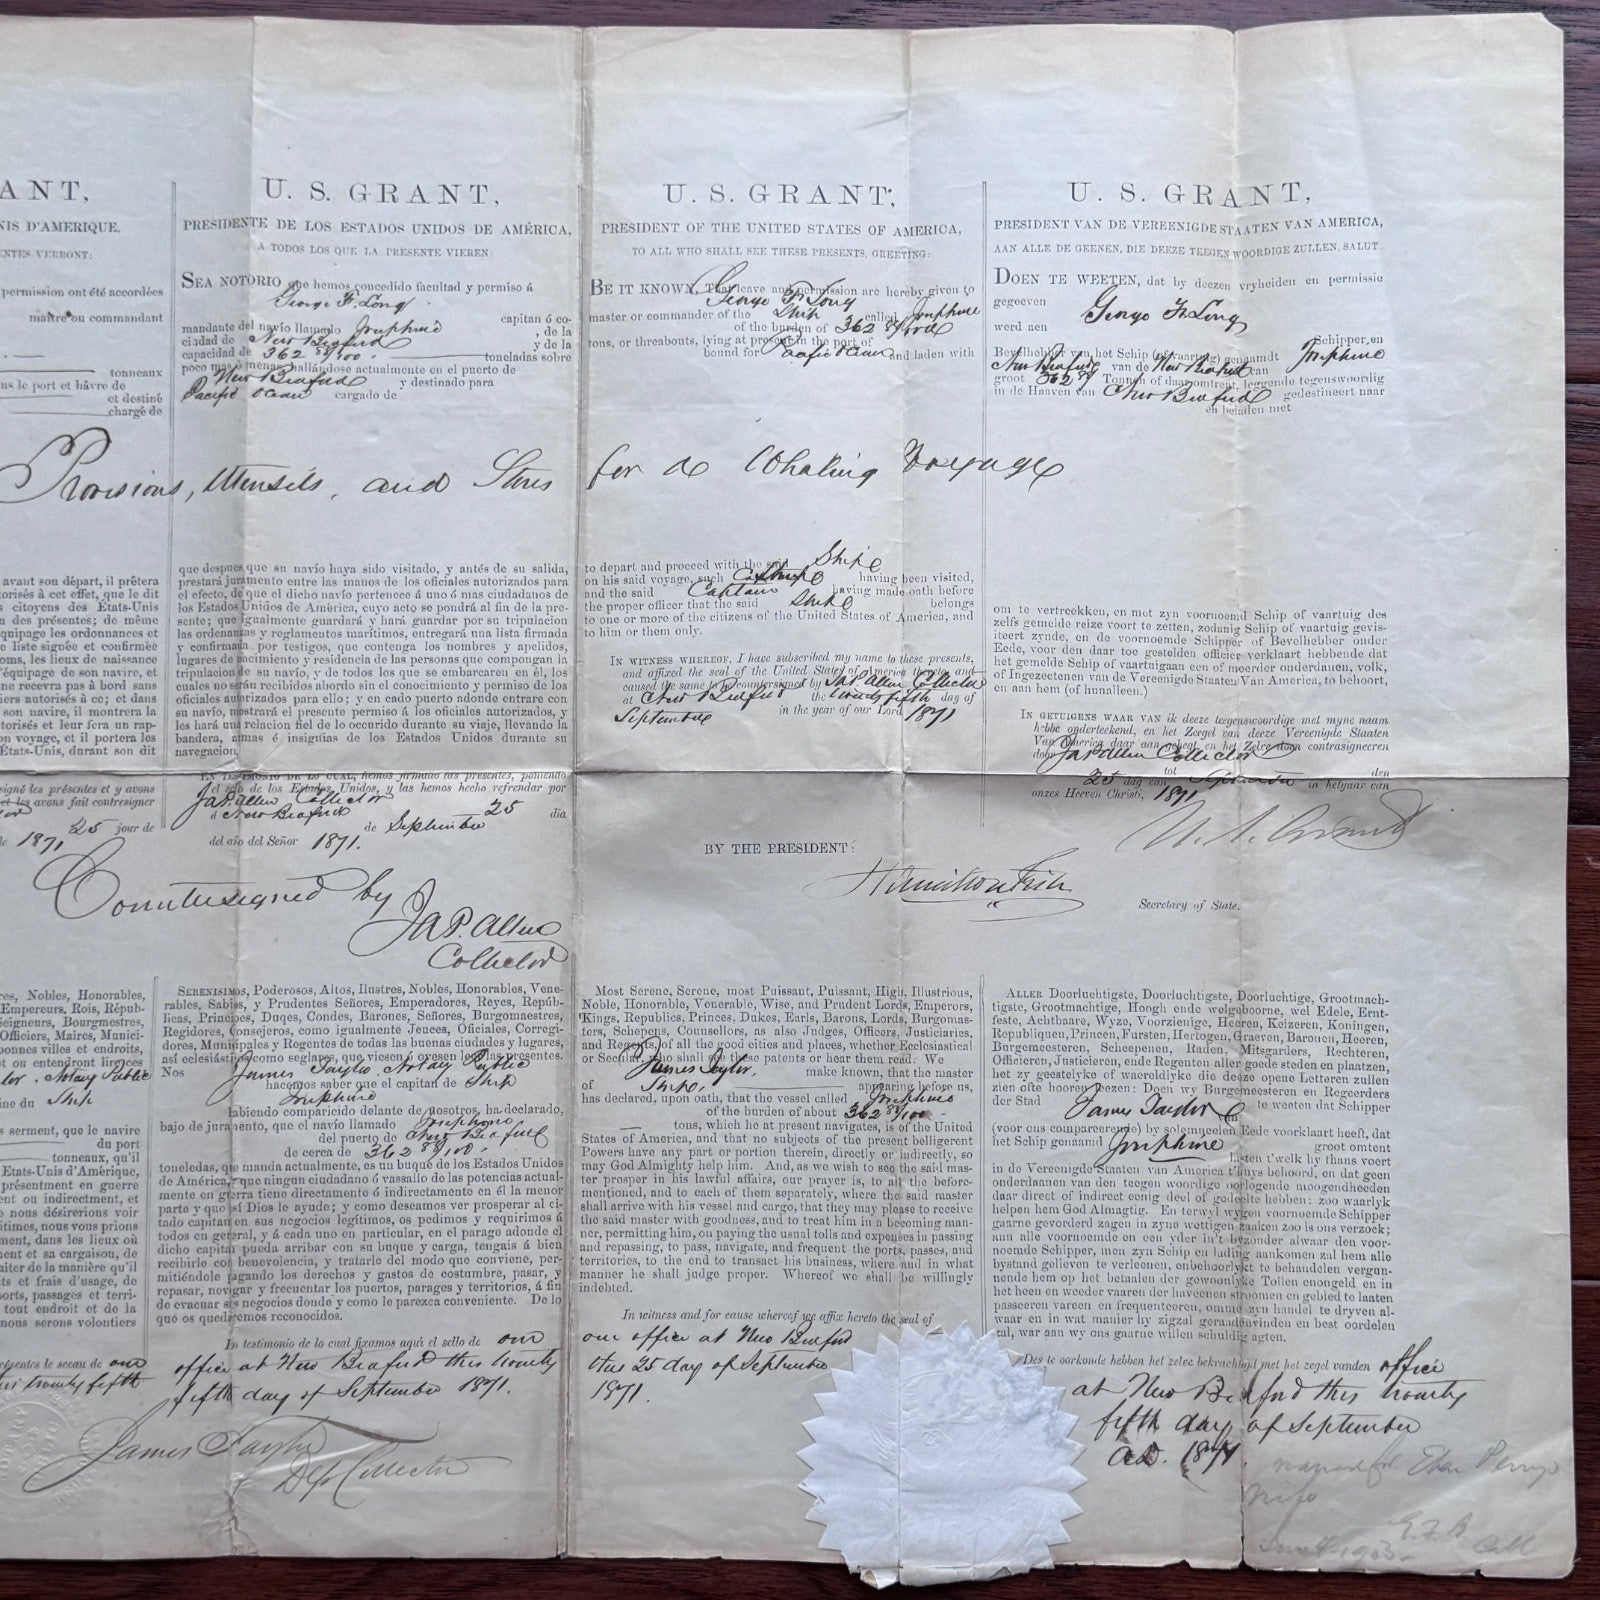 ANT,
NIS D'AMERIQUE,
ENTES VERRONT:
permission ont été accordées
maître ou commandant
tonneaux
ns le port et hâvre de
et destiné
chargé de
U. S. GRANT,
PRESIDENTE DE LOS ESTADOS UNIDOS DE AMÉRICA,
A TODOS LOS QUE LA PRESENTE VIEREN:
SEA NOTORIO que hemos concedido facultad y permiso á
George F. Long
capitan ó co-
mandante del navío llamado Josephine, de la
ciudad de New Bedford, y de la
capacidad de 362 88/100 toneladas sobre
poco mas ó menas hallándose actualmente en el puerto de
New Bedford y destinado para
Pacific Ocean cargado de
U. S. GRANT,
PRESIDENT OF THE UNITED STATES OF AMERICA,
TO ALL WHO SHALL SEE THESE PRESENTS, GREETING:
BE IT KNOWN, That leave and permission are hereby given to
George F. Long
master or commander of the Ship called Josephine
of the burden of 362 88/100
tons, or threabouts, lying at present in the port of
bound for Pacific Ocean and laden with
U. S. GRANT,
PRESIDENT VAN DE VEREENIGDE STAATEN VAN AMERICA,
AAN ALLE DE GEENEN, DIE DEEZE TEEGEN WOORDIGE ZULLEN, SALUT:
DOEN TE WEETEN, dat by deezen vryheiden en permissie
gegeeven George F. Long
werd aen Schipper, en
Bevelhebber van het Schip (of vaartuig) genaamdt Josephine
New Bedford van de New Bedford van
groot 362 88 Tonnen of daaromtrent, leggende tegenswoordig
in de Haaven van New Bedford gedestineert naar
en beladen met
Provisions, Utensils, and Stores for a Whaling Voyage
avant son départ, il prêtera
torisés à cet effet, que le dit
s citoyens des États-Unis
n des présentes; de même
équipage les ordonnances et
e liste signée et confirmée
oms, les lieux de naissance
l'équipage de son navire, et
ne recevra pas à bord sans
iers autorisés à ce; et dans
son navire, il montrera la
torisés et leur fera un rap-
on voyage, et il portera les
États-Unis, durant son dit
signé les présentes et y avons
et les avons fait contresigner
25 jour de
de 1871
que despues que su navío haya sido visitado, y antés de su salida,
prestará juramento entre las manos de los oficiales autorizados para
el efecto, de que el dicho navío pertenece á uno ó mas ciudadanos de
los Estados Unidos de América, cuyo acto se pondrá al fin de la pre-
sente; que igualmente guardará y hará guardar por su tripulacion
las ordenanzas y reglamentos marítimos, entregará una lista firmada
y confirmada por testigos, que contenga los nombres y apelidos,
lugares de nacimiento y residencia de las personas que compongan la
tripulacion de su navío, y de todos los que se embarcaren en él, los
cuales no serán recibidos abordo sin el conocimiento y permiso de los
oficiales autorizados para ello; y en cada puerto adonde entrare con
su navío, mostrará el presente permiso á los oficiales autorizados, y
los hará una relacion fiel de lo occurido durante su viaje, llevando la
bandera, armas é insignias de los Estados Unidos durante su
navegacion.
EN TESTIMONIO DE LO CUAL, hemos firmado las presentes, poniendo
el sello de los Estados Unidos, y las hemos hecho refrendar por
Jas P. Allen Collector
á New Bedford 25 dia
de September
del año del Señor 1871.
to depart and proceed with the said Ship
on his said voyage, such having been visited,
and the said Captain having made oath before
the proper officer that the said Ship belongs
to one or more of the citizens of the United States of America, and
to him or them only.
IN WITNESS WHEREOF, I have subscribed my name to these presents,
and affixed the seal of the United States of America thereto, and
caused the same to be countersigned by Jas P. Allen Collector
at New Bedford the twenty fifth day of
September in the year of our Lord 1871
om te vertreekken, en met zyn voornoemd Schip of vaartuig des
zelfs gemelde reize voort te zetten, zodanig Schip of vaartuig gevis-
iteert zynde, en de voornoemde Schipper of Bevelhebber onder
Eede, voor den daar toe gestelden officier verklaart hebbende dat
het gemelde Schip of vaartnigaan een of meerder onderdanen, volk,
of Ingezeetenen van de Vereenigde Staaten Van America, te behoort,
en aan hem (of hunalleen.)
IN GETUIGENS WAAR VAN ik deeze teegenswoordige met myne naam
hebbe onderteekend, en het Zeegel van deeze Vereenigde Staaten
Van America daar aan gehegt, en het Zelve doen contrasigneeren
door Jas P. Allen Collector
tot den
25 dag van September in hetjaar van
onzes Heeven Christi, 1871
U. S. Grant
BY THE PRESIDENT:
Hamilton Fish
Secretary of State.
Countersigned by
Jas P. Allen
Collector
res, Nobles, Honorables,
Empereurs, Rois, Répub-
Seigneurs, Bourgmestres,
Officiers, Maires, Munici-
bonnes villes et endroits,
ou entendront lireces
Notary Public
ine du Ship
s serment, que le navire
du port
tonneaux, qu'il
Etats-Unis d'Amérique,
présentment en guerre
ent ou indirectment, et
e nous désirerions voir
itimes, nous vous prions
ment, dans les lieux où
ment et sa cargaison, de
aiter de la manière qu'il
ts et frais d'usage, de
ports, passages et terri-
tout endroit et de la
nous serons volontiers
présentes le sceau de our
this twenty fifth
SERENISIMOS, Poderosos, Altos, Ilustres, Nobles, Honorables, Vene-
rables, Sabios, y Prudentes Señores, Emperadores, Reyes, Repúb-
licas, Principes, Duqes, Condes, Barones, Señores, Burgomaestres,
Regidores, Consejeros, como igualmente Jeuces, Oficiales, Corregi-
dores, Municipales y Regentes de todas las buenas ciudades y lugares,
así eclesiásticos como seglares, que viesen ó oyesen leer las presentes.
Nos James Taylor, Notary Public
hacemos saber que el capitan de Ship
Josephine
habiendo comparicido delante de nosotros, ha declarado,
bajo de juramento, que el navío llamado Josephine
del puerto de New Bedford
de cerca de 362 88/100.
toneledas, que manda actualmente, es un buque de los Estados Unidos
de América, y que ningun ciudadano ó vassallo de las potencias actual-
mente en guerra tiene directamente ó indirectamente en él la menor
parte y que si Dios le ayude; y como deseamos ver prosperar al ci-
tado capitan en sus negocios legítimos, os pedimos y requirimos á
todos en general, y á cada uno en particular, en el parago adonde el
dicho capitan pueda arribar con su buque y carga, tengais á bien
recibirle con benevolencia, y tratarle del modo que conviene, per-
mitiéndole pagando los derechos y gastos de costumbre, pasar, y
repasar, nevigar y frecuentar los puertos, parages y territorios, á fin
de evacuar sus negocios donde y como le parezca conveniente. De lo
que os quedaremos reconocidos.
In testimonio de lo cual fixamos aquí el sello de our
office at New Bedford this twenty
fifth day of September 1871.
James Taylor
Dep Collector
Most Serene, Serene, most Puissant, Puissant, High, Illustrious,
Noble, Honorable, Venerable, Wise, and Prudent Lords, Emperors,
Kings, Republics, Princes, Dukes, Earls, Barons, Lords, Burgomas-
ters, Schepens, Counsellors, as also Judges, Officers, Justiciaries,
and Regents, of all the good cities and places, whether Ecclesiastical
or Secular, who shall see these patents or hear them read: We
James Taylor, make known, that the master
of Ship, appearing before us,
has declared, upon oath, that the vessel called Josephine
of the burden of about 362 88/100
tons, which he at present navigates, is of the United
States of America, and that no subjects of the present belligerent
Powers have any part or portion therein, directly or indirectly, so
may God Almighty help him. And, as we wish to see the said mas-
ter prosper in his lawful affairs, our prayer is, to all the before-
mentioned, and to each of them separately, where the said master
shall arrive with his vessel and cargo, that they may please to receive
the said master with goodness, and to treat him in a becoming man-
ner, permitting him, on paying the usual tolls and expenses in passing
and repassing, to pass, navigate, and frequent the ports, passes, and
territories, to the end to transact his business, where and in what
manner he shall judge proper. Whereof we shall be willingly
indebted.
In witness and for cause whereof we affix hereto the seal of
our office at New Bedford
this 25 day of September
1871.
ALLER Doorluchtigste, Doorluchtigste, Doorluchtige, Grootmach-
tigste, Grootmachtige, Hoogh ende welgeboorne, wel Edele, Ernt-
feste, Achtbaare, Wyze, Voorzienige, Heeren, Keizeren, Koningen,
Republiquen, Princen, Fursten, Hertogen, Graeven, Baronen, Heeren,
Burgemeesteren, Scheepenen, Raden, Mitsgarders, Rechteren,
Officieren, Justicieren, ende Regenten aller goede steden en plaatzen,
het zy geestelyke of waerelyken die deeze opene Letteren zullen
zien ofte hooren leezen: Doen wy Burgemeesteren en Regeerders
der Stad James Taylor te weeten dat Schipper
(voor ons compareerende) by solemneelen Eede voorklaart heeft, dat
het Schip genaamd Josephine groot omtent
lasten t'welk hy thans voert
in de Vereenigde Staaten van America t'huys behoord, en dat geen
onderdaanen van den teegen woordige oorlogende moogendheeden
daar direct of indirect eenig deel of gedeelte hebben: zoo waarlyk
helpen hem God Almagtig. En terwyl wygen voornoemde Schipper
gaarne gevorderd zagen in zyne wettigen zaaken zoo is ons verzoek;
aan alle voornoemde en een yder in't byzonder alwaar den voor-
noemde Schipper, men zyn Schip en lading aankomen zal hem alle
bystand gelieven te verleenen, enbehoorlykt te behandelen vergun-
nende hem op het betaalen der gewoonlyke Tollen enongeld en in
het heen en weeder vaaren der haveenen stroomen en gebied te laaten
passeeren vareen en frequenteoren, omme zyn handel te dryven al-
waar en in wat manier by zigzal geraadenvinden en best oordelen
zal, war aan wy ons gaarne willen schuldig agten.
Des te oorkonde hebben het zelve bekrachtigd met het zegel vanden office
at New Bedford this twenty
fifth day of September
A.D. 1871.